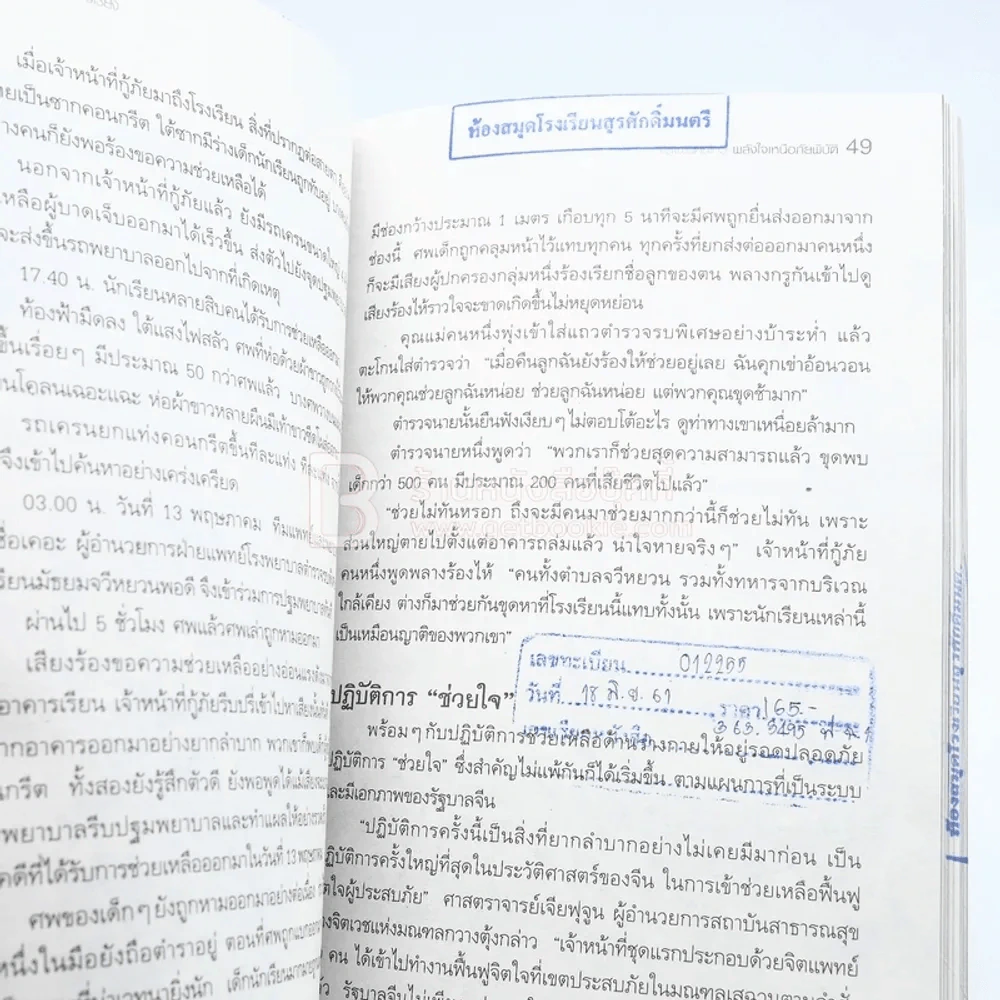 เมื่อเจ้าหน้าที่กู้ภัยมาถึงโรงเรียน สิ่งที่ปรากฏต่อสายตา
เป็นซากคอนกรีต ใต้ซากมีร่างเด็กนักเรียนถูกทับอยู่
คนก็ยังพอร้องขอความช่วยเหลือได้
นอกจากเจ้าหน้าที่กู้ภัยแล้ว ยังมีรถเครนขนาดใหญ่
เหลือผู้บาดเจ็บออกมาได้เร็วขึ้น ส่งตัวไปยังจุดปฐมพยาบาล
จะส่งขึ้นรถพยาบาลออกไปจากที่เกิดเหตุ
17.40 น. นักเรียนหลายสิบคนได้รับการช่วยเหลือออกมา
ท้องฟ้ามืดลง ใต้แสงไฟสลัว ศพที่ห่อด้วยผ้าขาวถูก
ขึ้นเรื่อยๆ มีประมาณ 50 กว่าศพแล้ว
โคลนเฉอะแฉะ ห่อผ้าขาวหลายผืนมีเท้าขาวซีด
รถเครนยกแท่งคอนกรีตขึ้นทีละแท่ง
จึงเข้าไปค้นหาอย่างเคร่งเครียด
03.00 น. วันที่ 13 พฤษภาคม ทีมแพทย์
ชื่อเคอะ ผู้อำนวยการฝ่ายแพทย์โรงพยาบาลตำรวจ
เรียนมัธยมจวีหยวนพอดี จึงเข้าร่วมการปฐมพยาบาล
ผ่านไป 5 ชั่วโมง ศพแล้วศพเล่าถูกหามออกมา
เสียงร้องขอความช่วยเหลืออย่างอ่อนแรงดัง
อาคารเรียน เจ้าหน้าที่กู้ภัยรีบปรี่เข้าไปหาเสียง
ากอาคารออกมาอย่างยากลำบาก พวกเขา
กรีต ทั้งสองยังรู้สึกตัวดี ยังพอพูดได้
พยาบาลรีบปฐมพยาบาลและทำแผลให้อย่าง
คดีที่ได้รับการช่วยเหลือออกมาในวันที่ 13 พฤษภาคม
ศพของเด็กๆ ยังถูกหามออกมาอย่างต่อเนื่อง
หนึ่งในมือยังถือตำราอยู่ ตอนที่ศพถูก
ที่น่าเวทนายิ่งนัก เด็กนักเรียน
ห้องสมุดโรงเรียนสุรศักดิ์มนตรี
พลังใจเหนือภัยพิบัติ 49
มีช่องกว้างประมาณ 1 เมตร เกือบทุก 5 นาทีจะมีศพถูกยื่นส่งออกมาจาก
ช่องนี้ ศพเด็กถูกคลุมหน้าไว้แทบทุกคน ทุกครั้งที่ยกส่งต่อออกมาคนหนึ่ง
ก็จะมีเสียงผู้ปกครองกลุ่มหนึ่งร้องเรียกชื่อลูกของตน พลางกรูกันเข้าไปดู
เสียงร้องไห้ราวใจจะขาดเกิดขึ้นไม่หยุดหย่อน
คุณแม่คนหนึ่งพุ่งเข้าใส่แถวตำรวจรบพิเศษอย่างบ้าระห่ำ แล้ว
ตะโกนใส่ตำรวจว่า "เมื่อคืนลูกฉันยังร้องให้ช่วยอยู่เลย ฉันคุกเข่าอ้อนวอน
ให้พวกคุณช่วยลูกฉันหน่อย ช่วยลูกฉันหน่อย แต่พวกคุณขุดช้ามาก"
ตำรวจนายนั้นยืนฟังเงียบๆ ไม่ตอบโต้อะไร ดูท่าทางเขาเหนื่อยล้ามาก
ตำรวจนายหนึ่งพูดว่า "พวกเราก็ช่วยสุดความสามารถแล้ว ขุดพบ
เด็กกว่า 500 คน มีประมาณ 200 คนที่เสียชีวิตไปแล้ว"
"ช่วยไม่ทันหรอก ถึงจะมีคนมาช่วยมากกว่านี้ก็ช่วยไม่ทัน เพราะ
ส่วนใหญ่ตายไปตั้งแต่อาคารถล่มแล้ว น่าใจหายจริงๆ" เจ้าหน้าที่กู้ภัย
คนหนึ่งพูดพลางร้องไห้ "คนทั้งตำบลจวีหยวน รวมทั้งทหารจากบริเวณ
ใกล้เคียง ต่างก็มาช่วยกันขุดหาที่โรงเรียนนี้แทบทั้งนั้น เพราะนักเรียนเหล่านี้
เป็นเหมือนญาติของพวกเขา"
เลขทะเบียน 012255
วันที่ 18 มิ.ย. 61 ราคา 165.-
363.3495
ปฏิบัติการ "ช่วยใจ"
พร้อมๆ กับปฏิบัติการช่วยเหลือด้านร่างกายให้อยู่รอดปลอดภัย
ปฏิบัติการ "ช่วยใจ" ซึ่งสำคัญไม่แพ้กันก็ได้เริ่มขึ้น ตามแผนการที่เป็นระบบ
และมีเอกภาพของรัฐบาลจีน
"ปฏิบัติการครั้งนี้เป็นสิ่งที่ยากลำบากอย่างไม่เคยมีมาก่อน เป็น
ปฏิบัติการครั้งใหญ่ที่สุดในประวัติศาสตร์ของจีน ในการเข้าช่วยเหลือฟื้นฟู
จิตใจผู้ประสบภัย" ศาสตราจารย์เจียฟูจูน ผู้อำนวยการสถาบันสาธารณสุข
จิตเวชแห่งมณฑลกวางตุ้งกล่าว "เจ้าหน้าที่ชุดแรกประกอบด้วยจิตแพทย์
คน ได้เข้าไปทำงานฟื้นฟูจิตใจที่เขตประสบภัยในมณฑลเสฉวนตามคำสั่ง
ร้านหนังสือบุ๊คกี้
www.getbookie.com
ห้องสมุดโรงเรียนสุรศักดิ์มนตรี